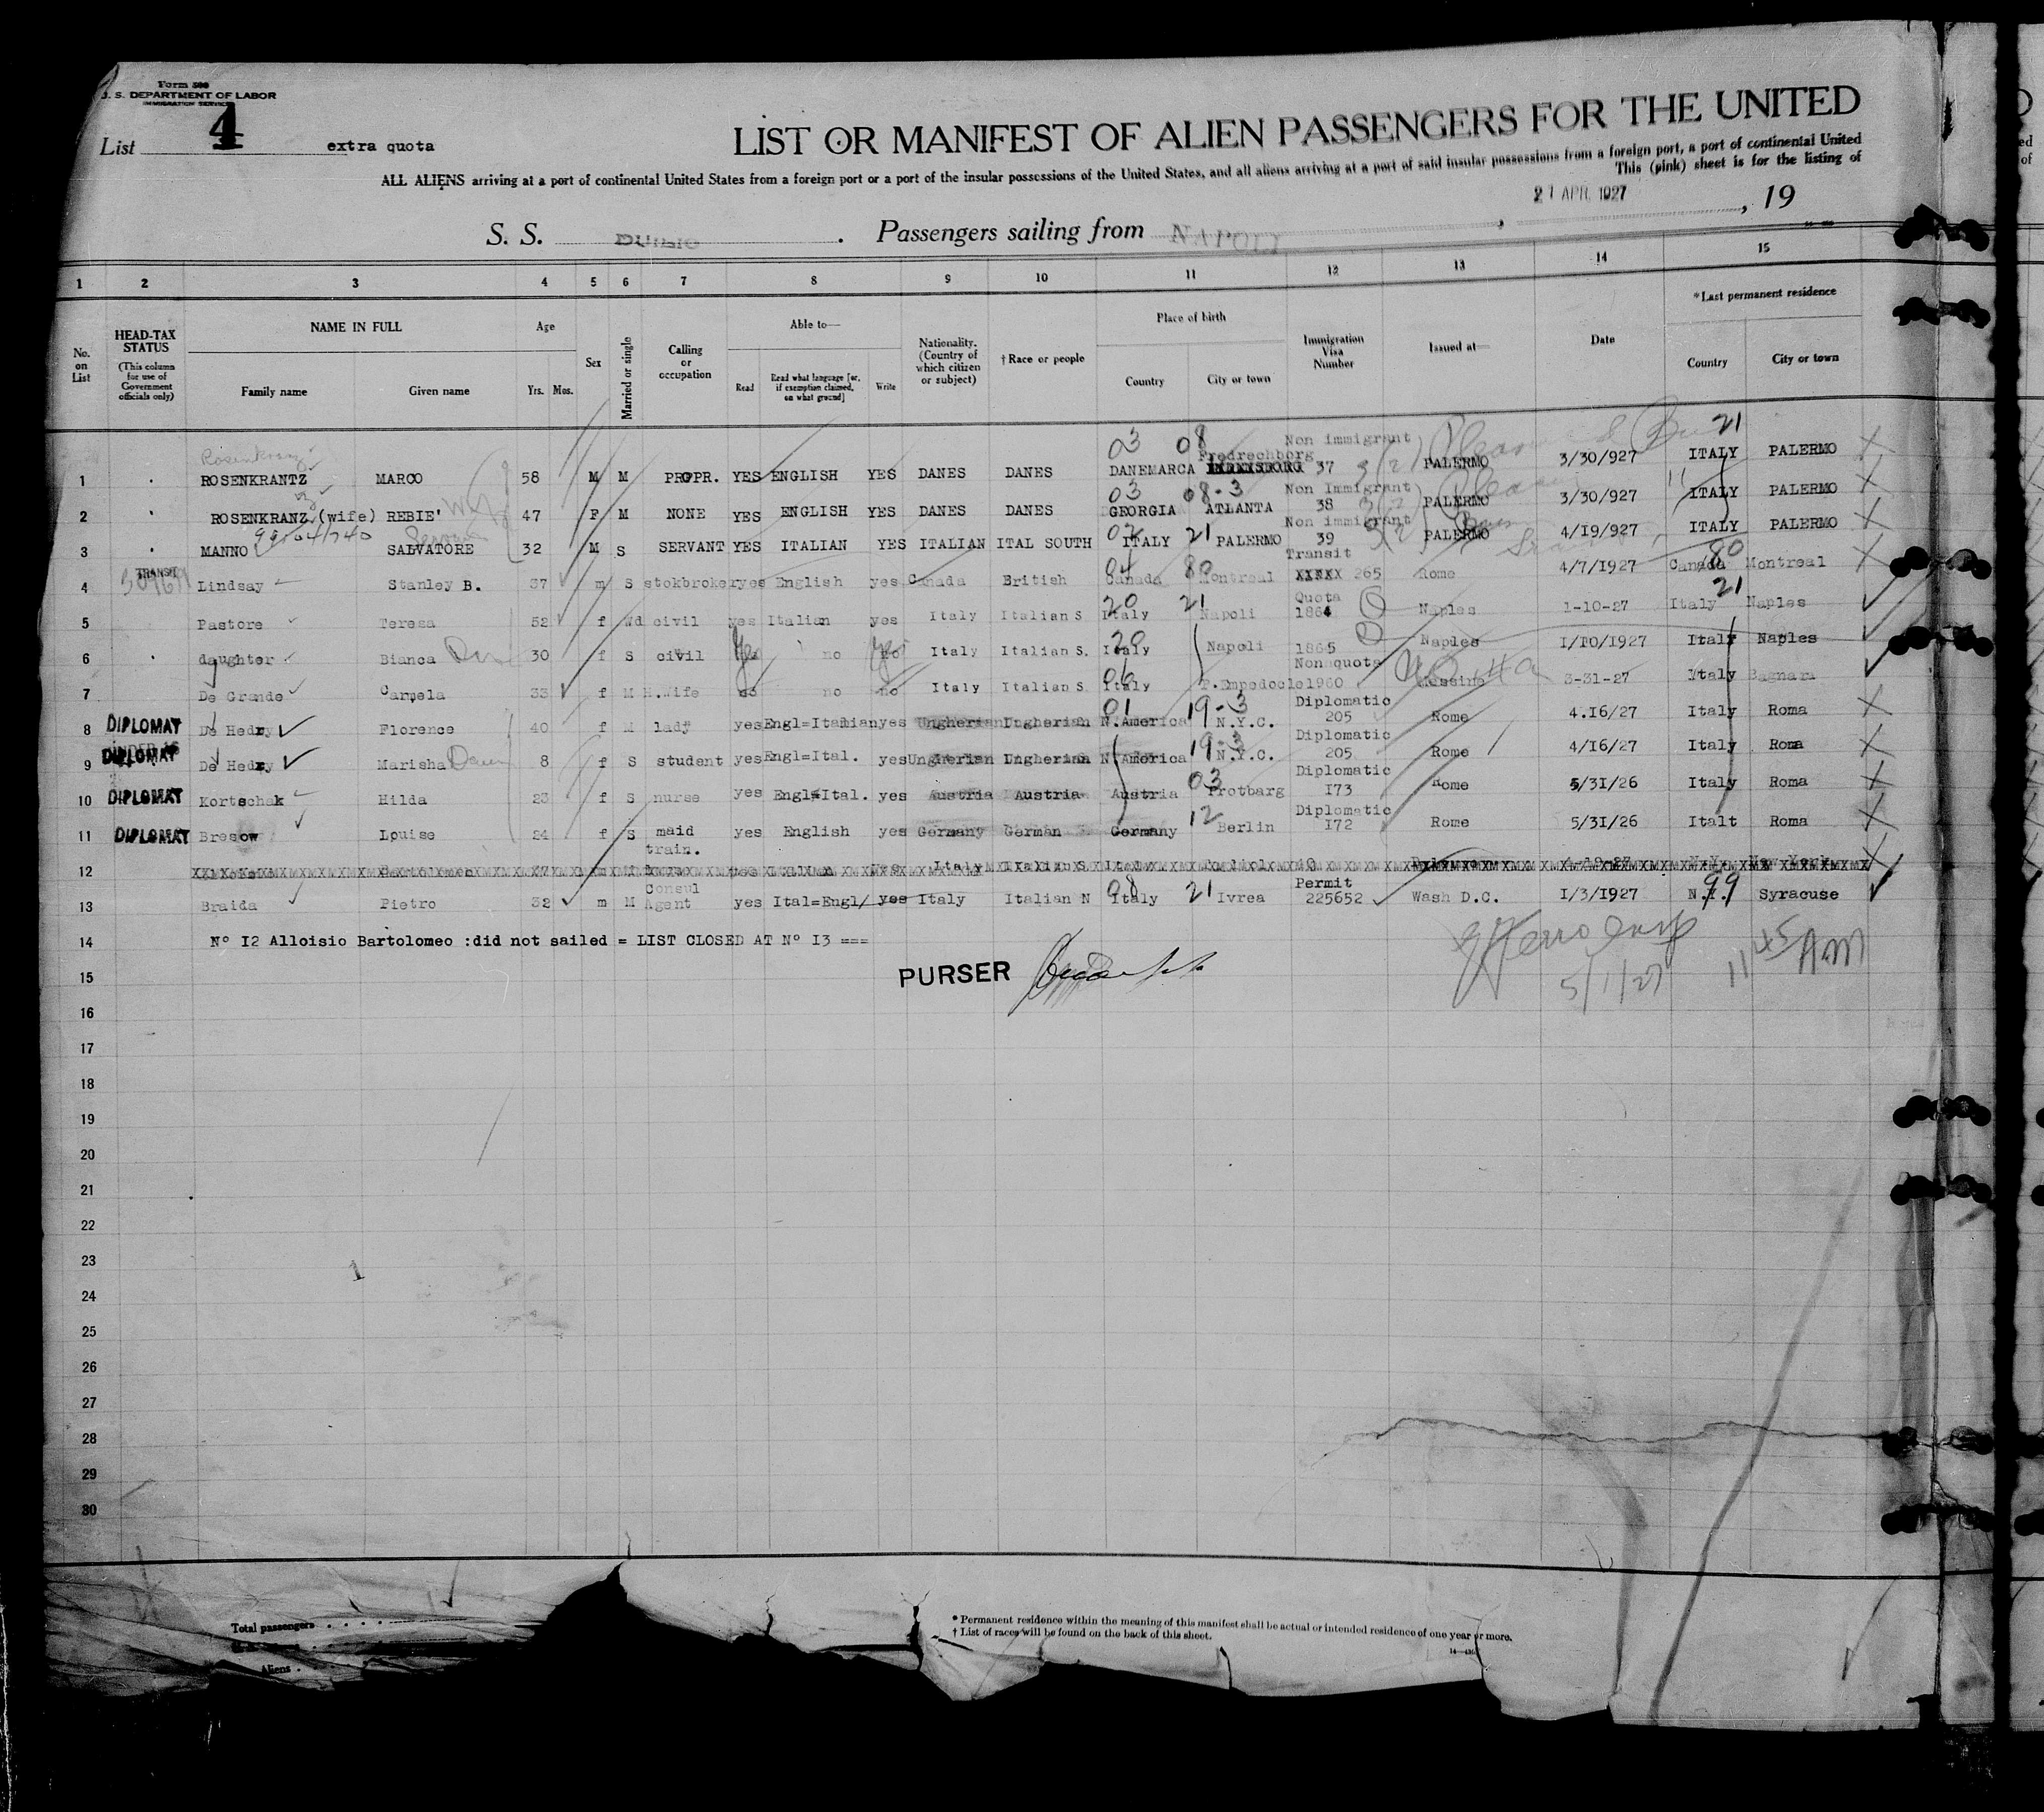 Form 500
U. S. DEPARTMENT OF LABOR
IMMIGRATION SERVICE
List 4 extra quota
LIST OR MANIFEST OF ALIEN PASSENGERS FOR THE UNITED
ALL ALIENS arriving at a port of continental United States from a foreign port or a port of the insular possessions of the United States, and all aliens arriving at a port of said insular possessions from a foreign port, a port of continental United
This (pink) sheet is for the listing of
S. S. DUILIO. Passengers sailing from NAPOLI, 21 APR. 1927, 19
1 2 3 4 5 6 7 8 9 10 11 12 13 14 15
No. on List
HEAD-TAX STATUS (This column for use of Government officials only)
NAME IN FULL Family name Given name
Age Yrs. Mos.
Sex
Married or single
Calling or occupation
Able to— Read Read what language [or, if exemption claimed, on what ground] Write
Nationality. (Country of which citizen or subject)
† Race or people
Place of birth Country City or town
Immigration Visa Number
Issued at—
Date
* Last permanent residence Country City or town
Rosenkranz 03 08 Fredrechborg Non immigrant 21
1 ROSENKRANTZ MARCO 58 M M PROPR. YES ENGLISH YES DANES DANES DANEMARCA 37 3(2) PALERMO 3/30/927 ITALY PALERMO
03 08-3 Non Immigrant
2 ROSENKRANZ (wife) REBIE' 47 F M NONE YES ENGLISH YES DANES DANES GEORGIA ATLANTA 38 3(2) PALERMO 3/30/927 ITALY PALERMO
99/04/740 Servant Non immigrant
3 MANNO SALVATORE 32 M S SERVANT YES ITALIAN YES ITALIAN ITAL SOUTH ITALY 21 PALERMO 39 3(2) PALERMO 4/19/927 ITALY PALERMO
TRANSIT 04 80 Transit 80
4 Lindsay Stanley B. 37 m S stokbroker yes English yes Canada British Canada Montreal XXXXX 265 Rome 4/7/1927 Canada Montreal
20 21 Quota 21
5 Pastore Teresa 52 f Wd civil yes Italian yes Italy Italian S Italy Napoli 1864 Naples 1-10-27 Italy Naples
6 daughter Bianca 30 f S civil Yes no Yes Italy Italian S. Italy Napoli 1865 Naples 1/10/1927 Italy Naples
Nonquota
7 De Grande Carmela 33 f M H.Wife no no no Italy Italian S Italy P.Empedocle 1960 Messina 3-31-27 Italy Bagnara
01 19-3 Diplomatic
8 DIPLOMAT De Hedry Florence 40 f M lady yes Engl=Italian yes Ungherian Ungherian N.America N.Y.C. 205 Rome 4.16/27 Italy Roma
UNDER 16 19-3 Diplomatic
9 DIPLOMAT De Hedry Marisha 8 f S student yes Engl=Ital. yes Ungherian Ungherian N.America N.Y.C. 205 Rome 4/16/27 Italy Roma
03 Diplomatic
10 DIPLOMAT Kortschak Hilda 23 f S nurse yes Engl=Ital. yes Austria Austria Austria Protbarg I73 Rome 5/31/26 Italy Roma
12 Diplomatic
11 DIPLOMAT Bresow Louise 24 f S maid yes English yes Germany German Germany Berlin I72 Rome 5/31/26 Italt Roma
train.
12
Consul Permit
13 Braida Pietro 32 m M Agent yes Ital=Engl/ yes Italy Italian N Italy 21 Ivrea 225652 Wash D.C. 1/3/1927 N.Y. 99 Syracuse
14 Nº I2 Alloisio Bartolomeo :did not sailed = LIST CLOSED AT Nº I3 ===
15 PURSER
5/1/27 11 45 AM
16
17
18
19
20
21
22
23
24
25
26
27
28
29
30
Total passengers
Aliens
* Permanent residence within the meaning of this manifest shall be actual or intended residence of one year or more.
† List of races will be found on the back of this sheet.